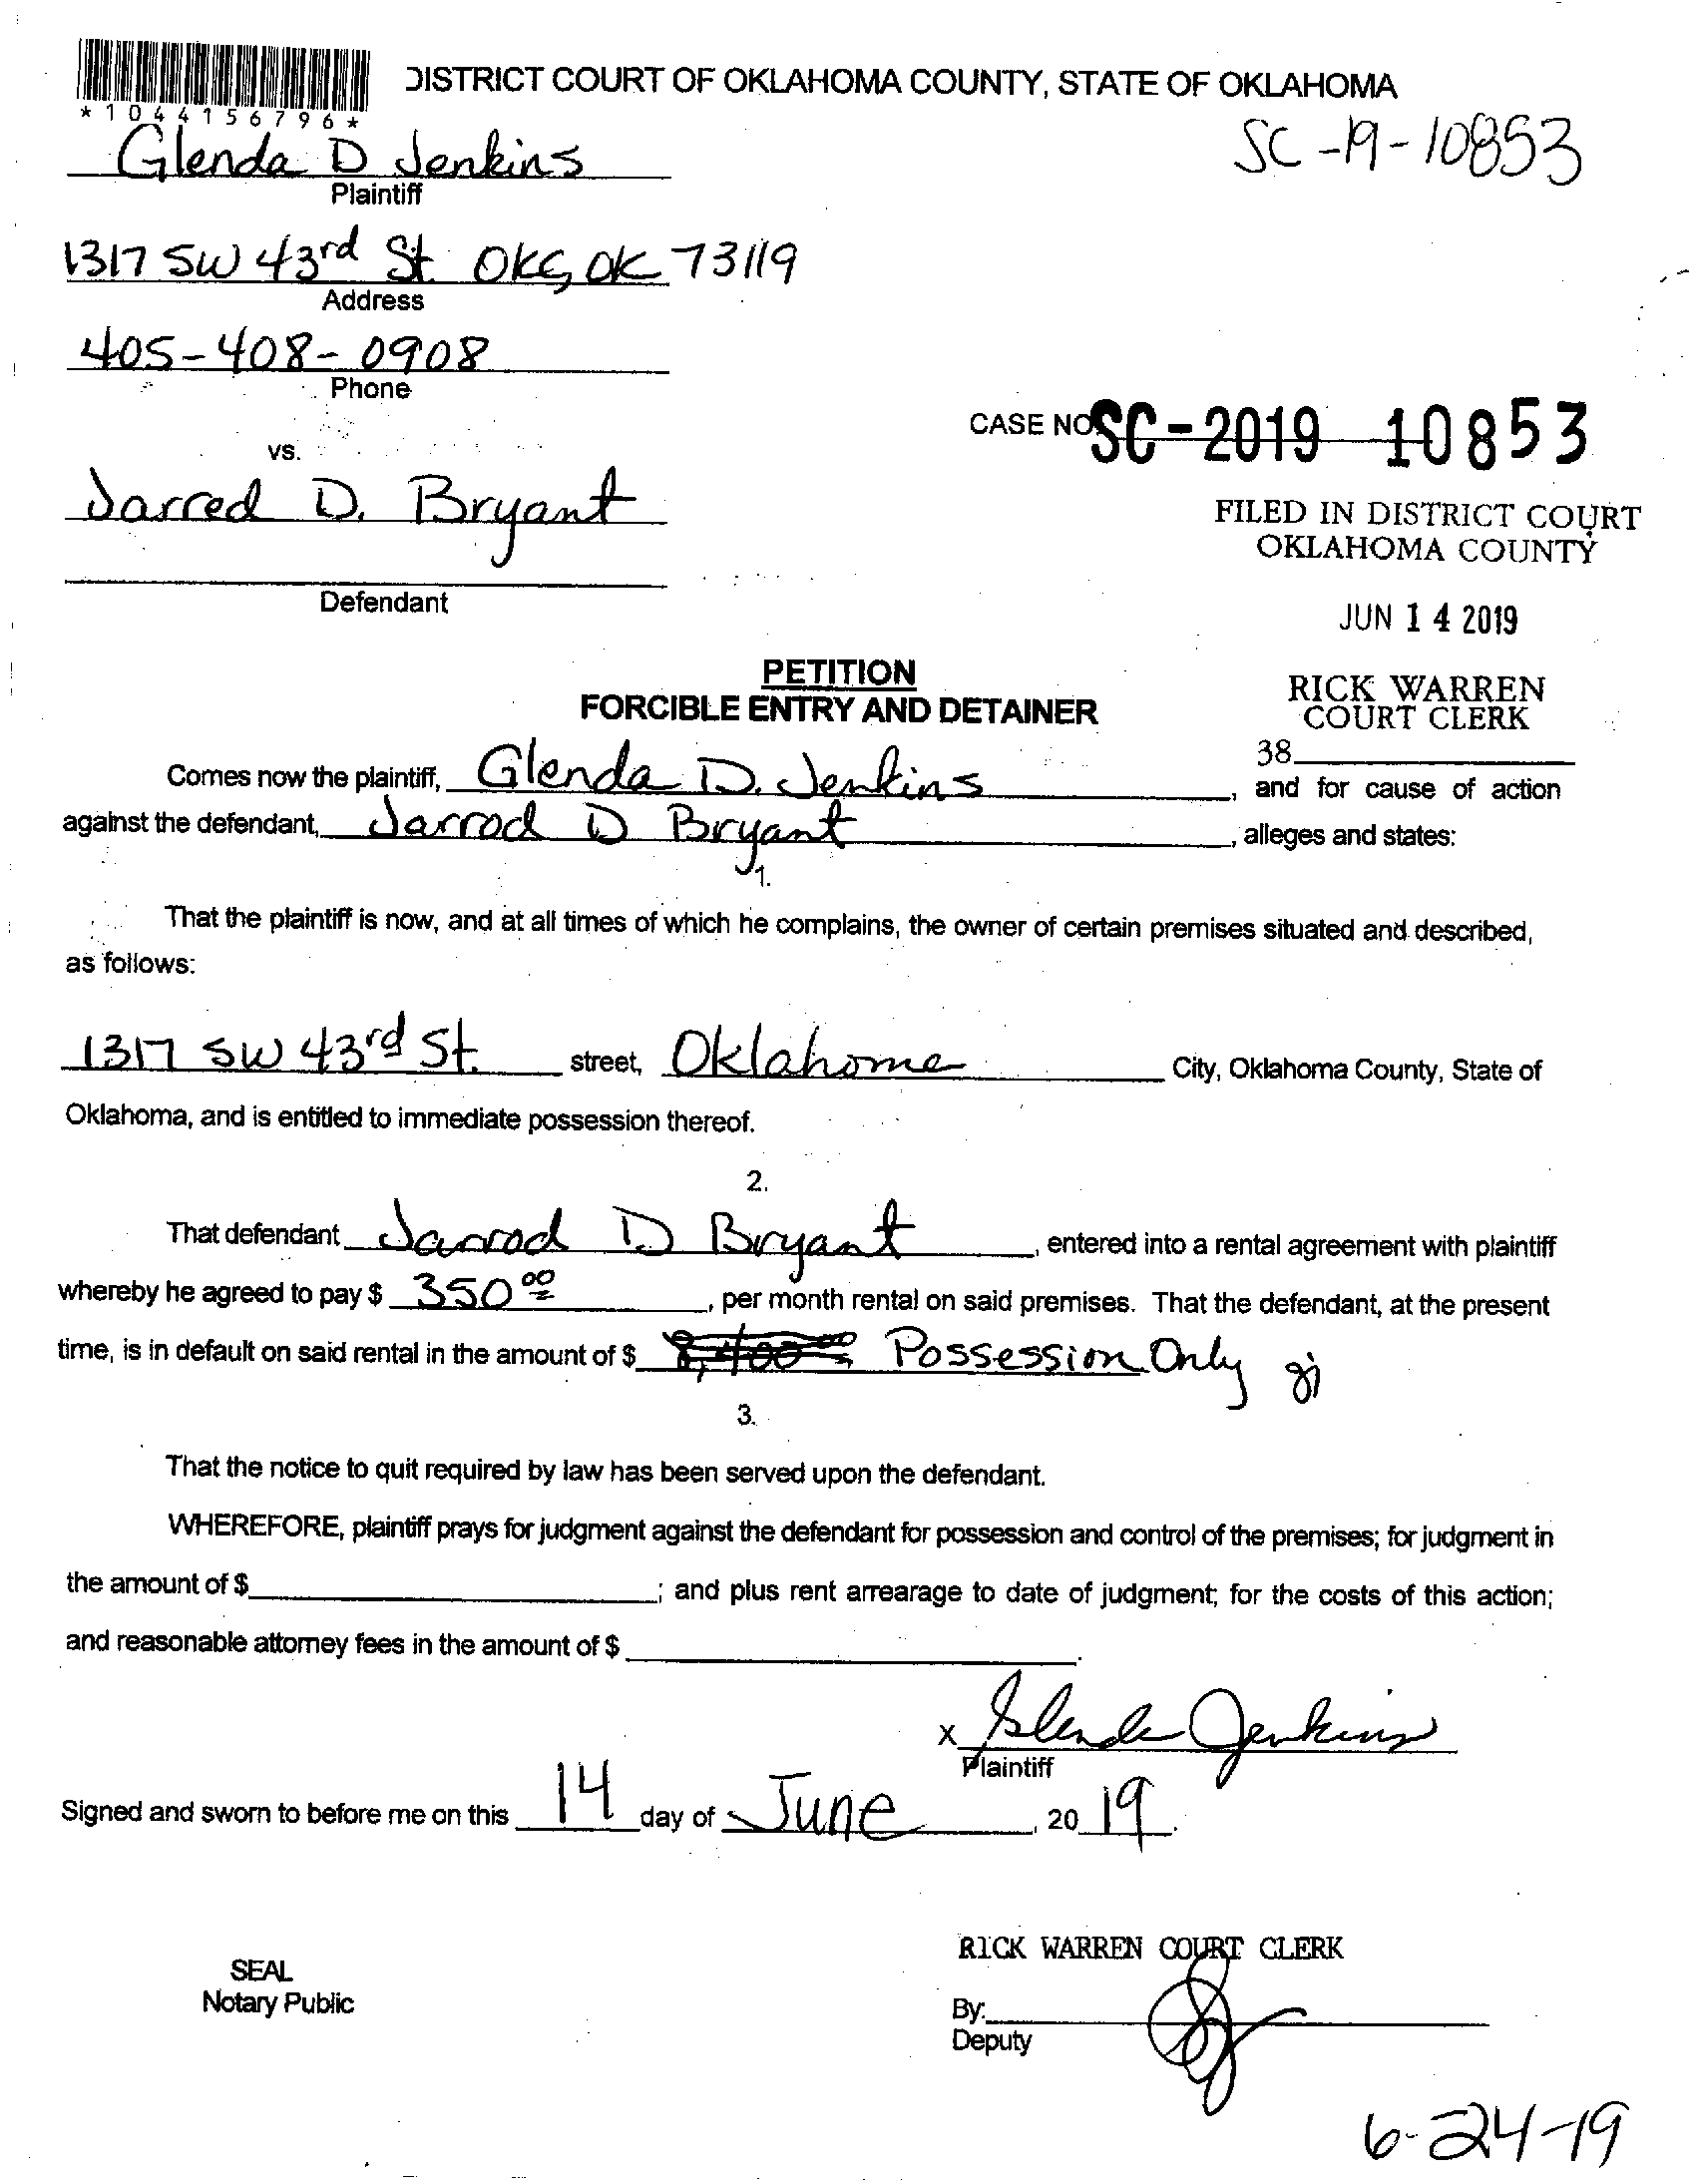 DISTRICT COURT OF OKLAHOMA COUNTY, STATE OF OKLAHOMA
*1044156796*
SC-19-10853
Glenda D Jenkins
Plaintiff
1317 SW 43rd St. OKC, OK 73119
Address
405-408-0908
Phone
CASE NO SC-2019 10853
vs.
Jarred D. Bryant
FILED IN DISTRICT COURT
OKLAHOMA COUNTY
Defendant
JUN 14 2019
PETITION
FORCIBLE ENTRY AND DETAINER
RICK WARREN
COURT CLERK
38
Comes now the plaintiff, Glenda D. Jenkins, and for cause of action
against the defendant, Jarrod D Bryant, alleges and states:
1.
That the plaintiff is now, and at all times of which he complains, the owner of certain premises situated and described,
as follows:
1317 SW 43rd St. street, Oklahome City, Oklahoma County, State of
Oklahoma, and is entitled to immediate possession thereof.
2.
That defendant Jarrod D Bryant, entered into a rental agreement with plaintiff
whereby he agreed to pay $ 350 00, per month rental on said premises. That the defendant, at the present
time, is in default on said rental in the amount of $ Possession Only gj
3.
That the notice to quit required by law has been served upon the defendant.
WHEREFORE, plaintiff prays for judgment against the defendant for possession and control of the premises; for judgment in
the amount of $; and plus rent arrearage to date of judgment; for the costs of this action;
and reasonable attorney fees in the amount of $.
X Glenda Jenkins
Plaintiff
Signed and sworn to before me on this 14 day of June, 20 19.
RICK WARREN COURT CLERK
SEAL
Notary Public
By:
Deputy
6-24-19